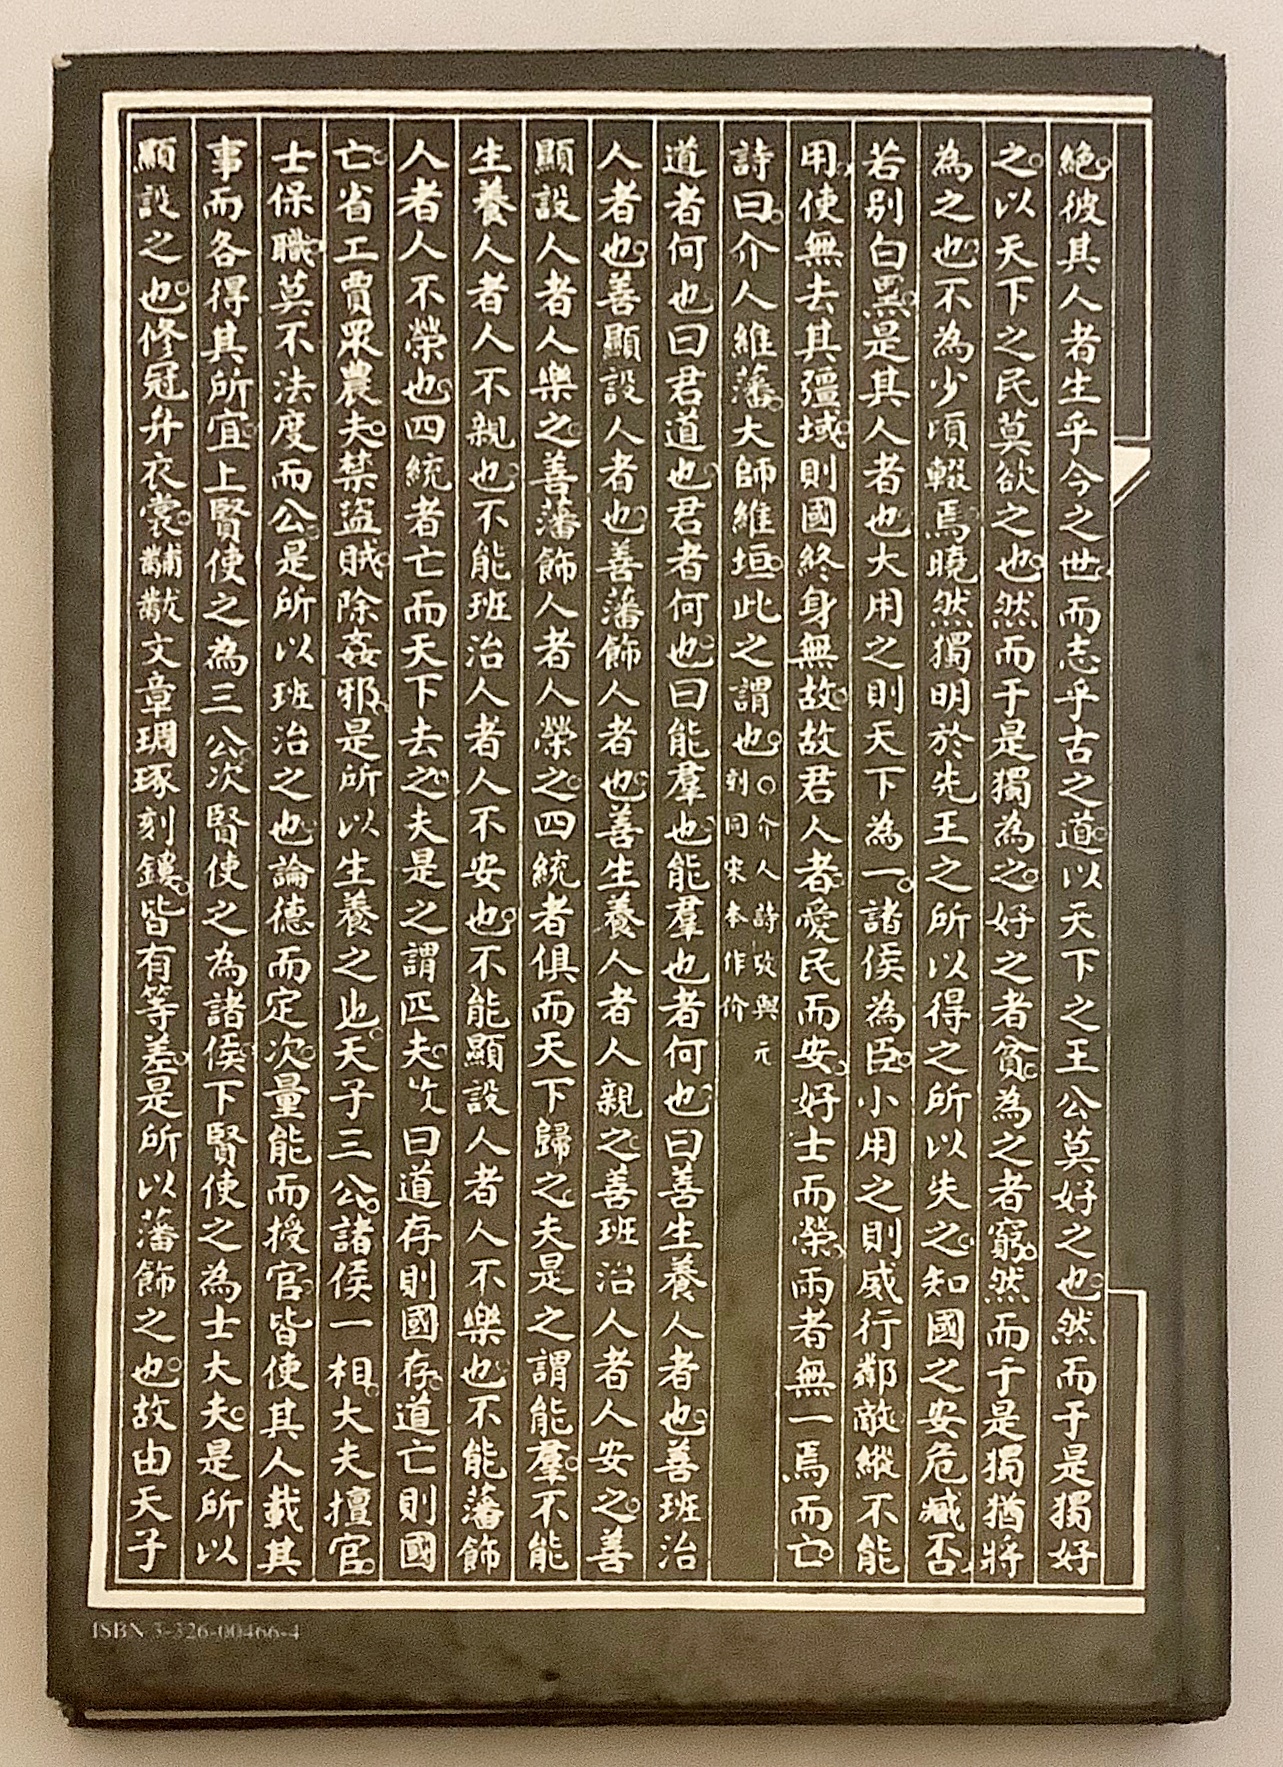 絶彼其人者生乎今之世而志乎古之道以天下之王公莫好之也然而于是獨好
之以天下之民莫欲之也然而于是獨為之好之者貧為之者窮然而于是獨猶將
為之也不為少頃輟焉曉然獨明於先王之所以得之所以失之知國之安危臧否
若別白黑是其人者也大用之則天下為一諸侯為臣小用之則威行鄰敵縱不能
用使無去其疆域則國終身無故故君人者愛民而安好士而榮兩者無一焉而亡
詩曰介人維藩大師維垣此之謂也〇介人詩攷與元
刻同宋本作价
道者何也曰君道也君者何也曰能羣也能羣也者何也曰善生養人者也善班治
人者也善顯設人者也善藩飾人者也善生養人者人親之善班治人者人安之善
顯設人者人樂之善藩飾人者人榮之四統者俱而天下歸之夫是之謂能羣不能
生養人者人不親也不能班治人者人不安也不能顯設人者人不樂也不能藩飾
人者人不榮也四統者亡而天下去之夫是之謂匹夫故曰道存則國存道亡則國
亡省工賈眾農夫禁盜賊除姦邪是所以生養之也天子三公諸侯一相大夫擅官
士保職莫不法度而公是所以班治之也論德而定次量能而授官皆使其人載其
事而各得其所宜上賢使之為三公次賢使之為諸侯下賢使之為士大夫是所以
顯設之也修冠弁衣裳黼黻文章琱琢刻鏤皆有等差是所以藩飾之也故由天子
ISBN 3-326-00466-4